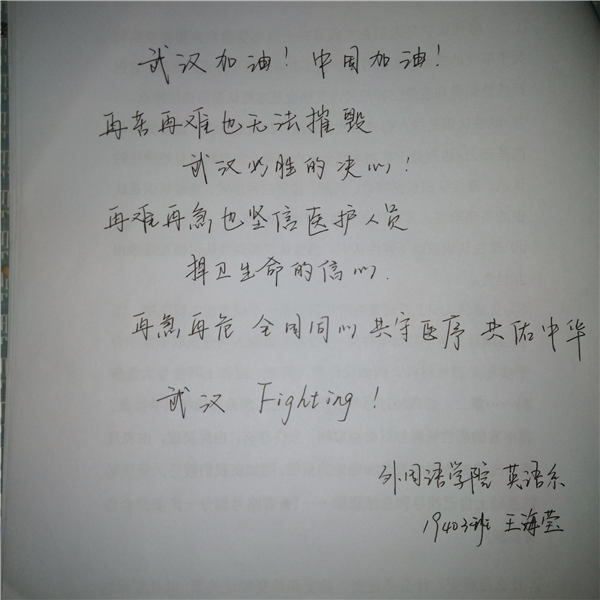 武汉加油！中国加油！
再苦再难也无法摧毁
武汉必胜的决心！
再难再急也坚信医护人员
捍卫生命的信心.
再急再危 全国同心 共守医序 共佑中华
武汉 Fighting！
外国语学院 英语系
19403班 王海莹